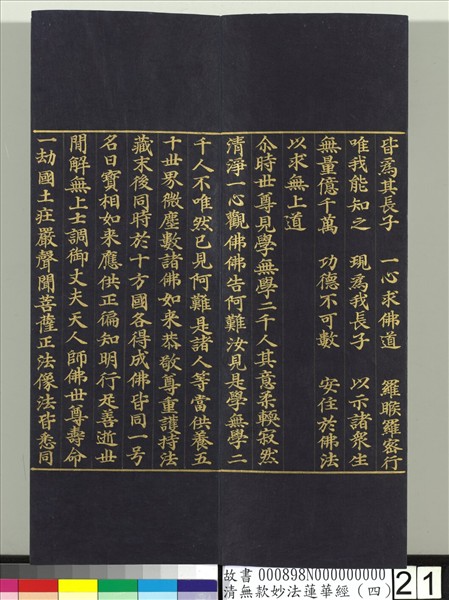 皆爲其長子　一心求佛道　羅睺羅密行
唯我能知之　現爲我長子　以示諸衆生
無量億千萬　功德不可數　安住於佛法
以求無上道
尒時世尊見學無學二千人其意柔輭寂然
清淨一心觀佛佛告阿難汝見是學無學二
千人不唯然已見阿難是諸人等當供養五
十世界微塵數諸佛如來恭敬尊重護持法
藏末後同時於十方國各得成佛皆同一号
名曰寶相如來應供正徧知明行足善逝世
間解無上士調御丈夫天人師佛世尊壽命
一劫國土莊嚴聲聞菩薩正法像法皆悉同
故書 000898N000000000
清無款妙法蓮華經（四）
21